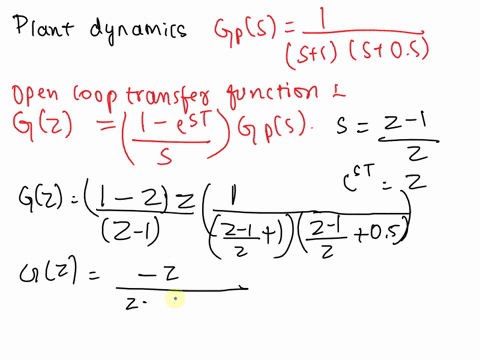 Plant dynamics Gp(s) = 1 / (s+s) (s+0.5)
Open loop transfer function
G(z) = (1 - e^sT / s) Gp(s). s = z-1 / z
e^sT = z
G(z) = (1-z) z / (z-1) (1 / (z-1/z +1) (z-1/z +0.5))
G(z) = -z / z.